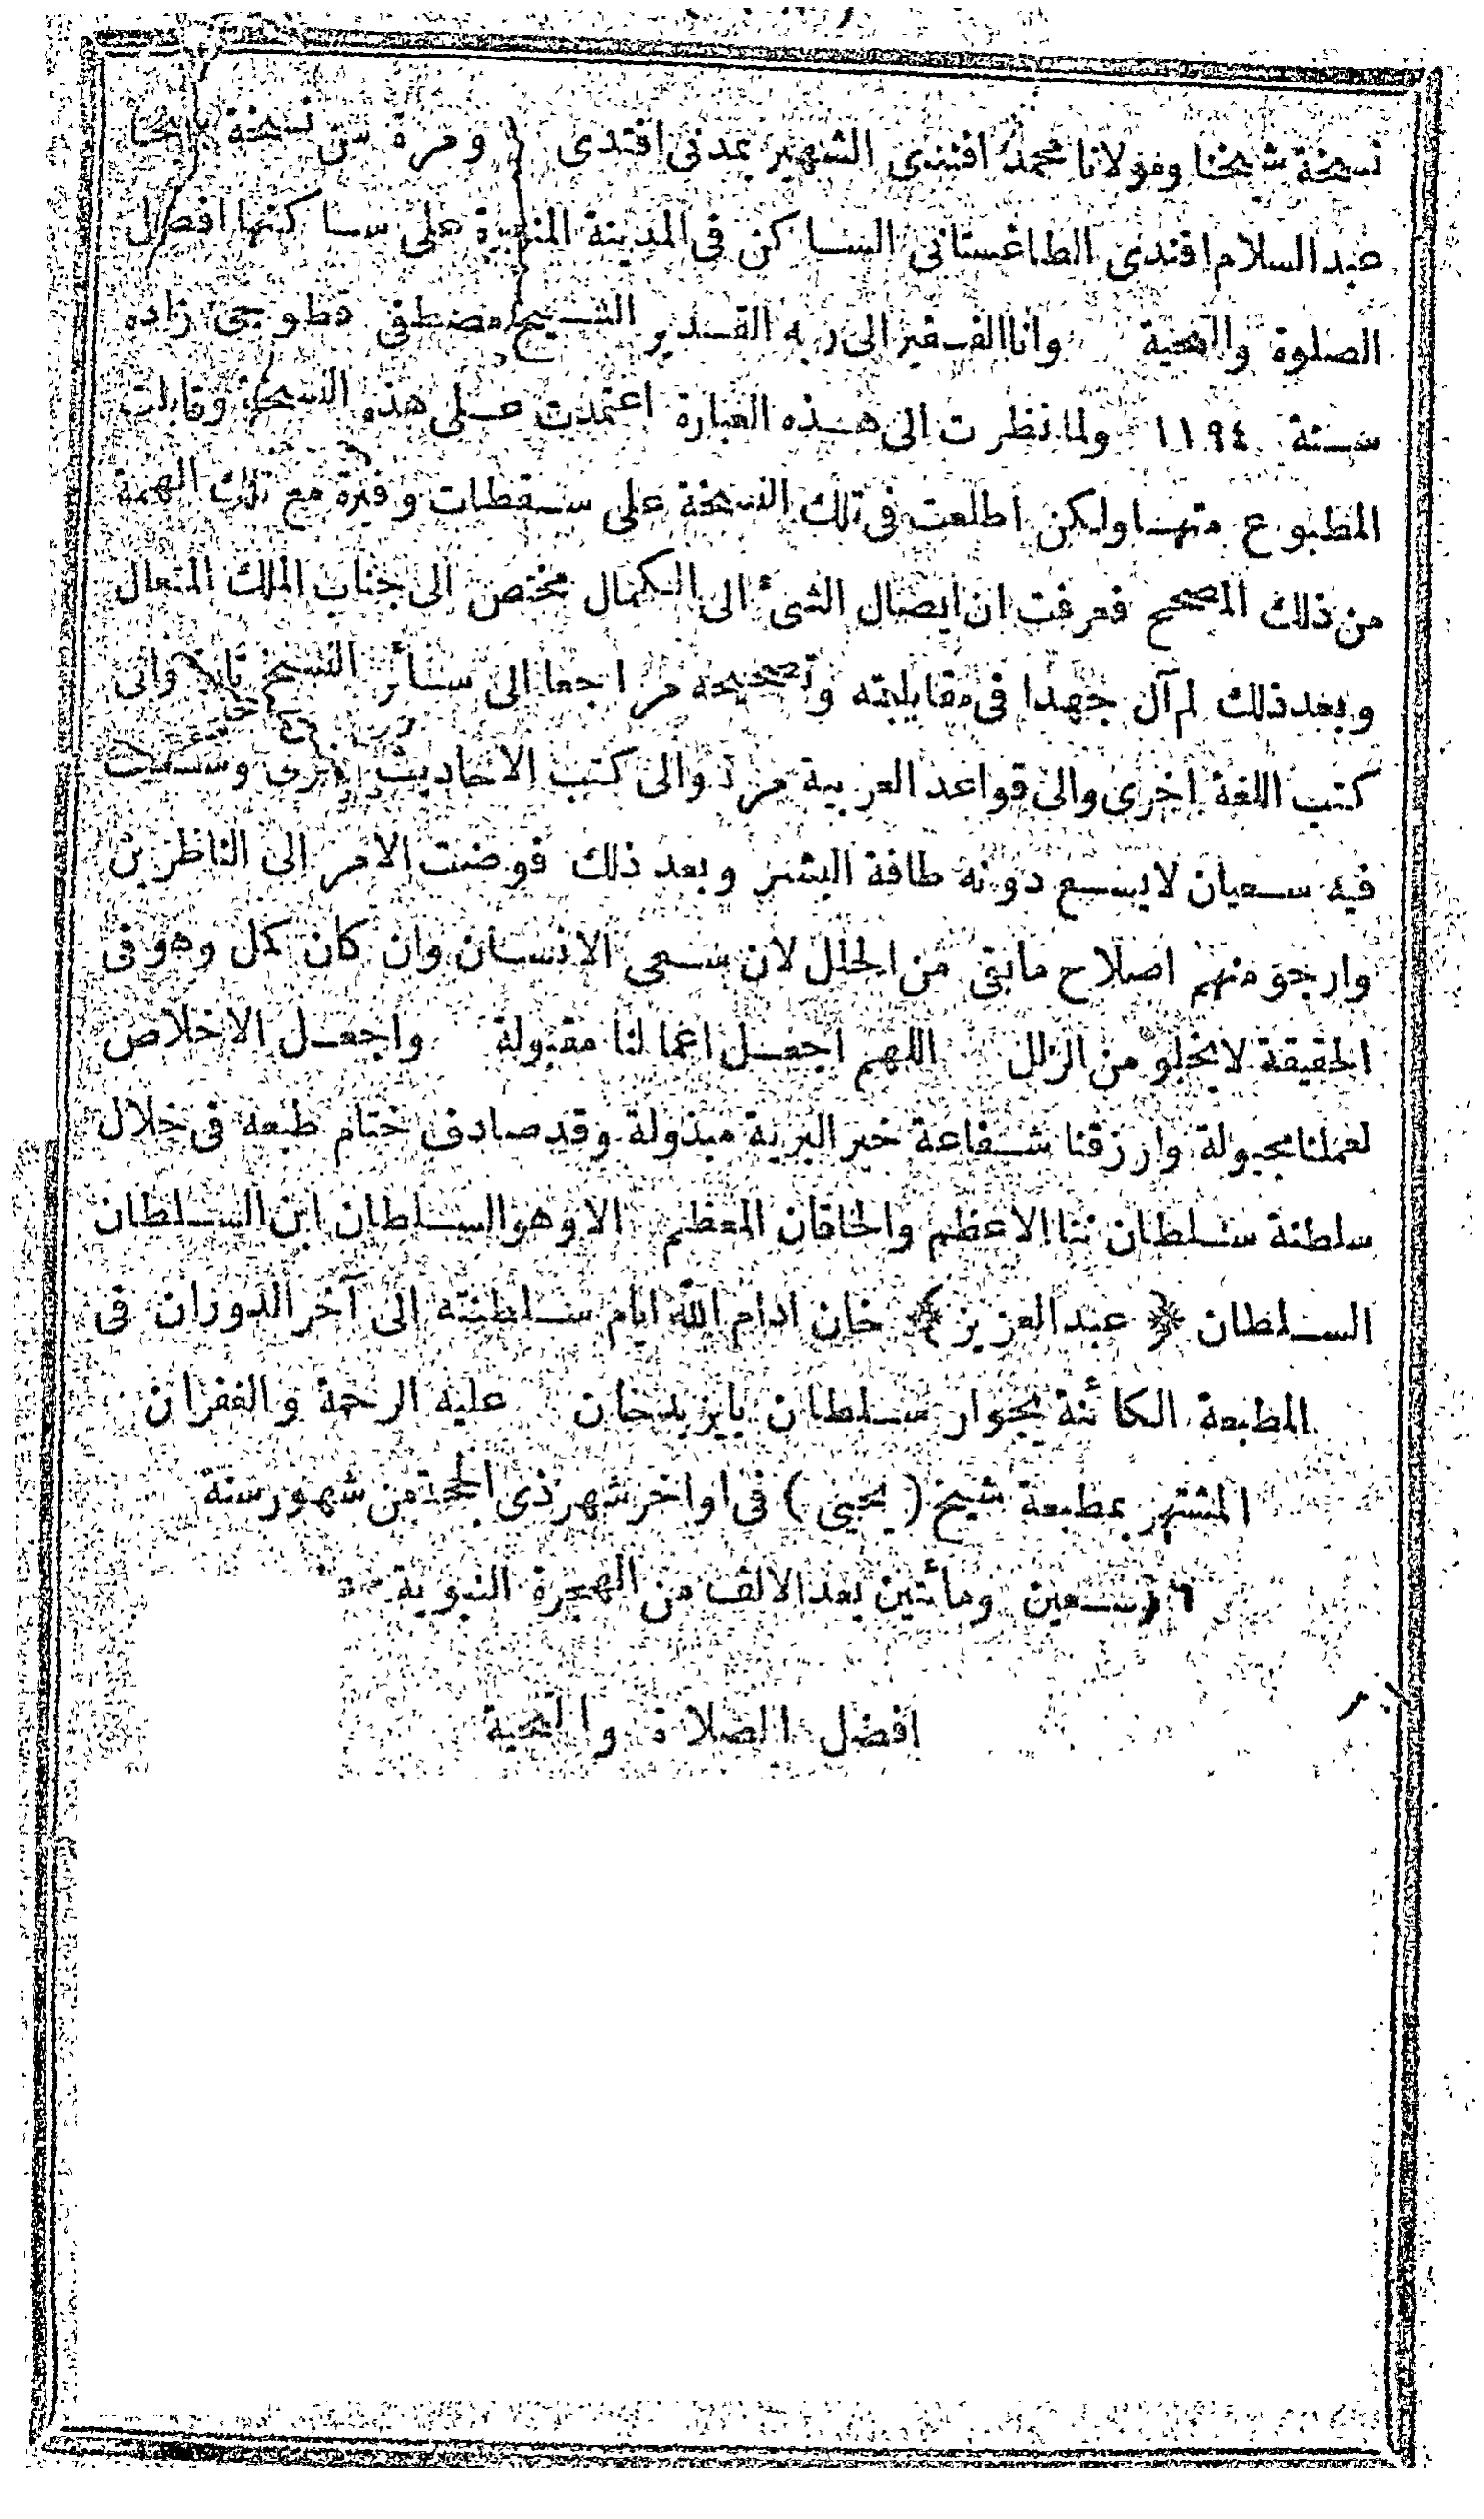 نسخة شيخنا ومولانا محمد افندى الشهير بمدنى افندى ومرة من نسخة شيخنا
عبد السلام افندى الطاغستانى الساكن فى المدينة المنورة على ساكنها افضل
الصلوة والتحية وانا الفقير الى ربه القدير الشيخ مصطفى قطوجى زاده
سنة ١١٩٤ ولما نظرت الى هذه العبارة اعتمدت على هذه النسخة وقابلت
المطبوع منها ولكن اطلعت فى تلك النسخة على سقطات وفيرة مع تلك الهمة
من ذلك المصحح فعرفت ان ايصال الشئ الى الكمال مختص الى جناب الملك المتعال
وبعد ذلك لم آل جهدا فى مقابلته وتصحيحه مراجعا الى سائر النسخ تارة والى
كتب اللغة اخرى والى قواعد العربية مرة والى كتب الاحاديث اخرى وسعيت
فيه سعيان لا يسع دونه طاقة البشر وبعد ذلك فوضت الامر الى الناظرين
وارجو منهم اصلاح ما بقى من الخلل لان سعى الانسان وان كان كمل وهو فى
الحقيقة لا يخلو من الزلل اللهم اجعل اعمالنا مقبولة واجعل الاخلاص
لعملنا مجبولة وارزقنا شفاعة خير البرية مبذولة وقد صادف ختام طبعه فى خلال
سلطنة سلطان ننا الاعظم والخاقان المعظم الا وهو السلطان ابن السلطان
السلطان ﴿ عبد العزيز ﴾ خان ادام الله ايام سلطنته الى آخر الدوران فى
المطبعة الكائنة بجوار سلطان بايزيد خان عليه الرحمة والغفران
المشتهر بمطبعة شيخ ( يحيى ) فى اواخر شهر ذى الحجة من شهور سنة
ومأتين بعد الالف من الهجرة النبوية
افضل الصلاة والتحية